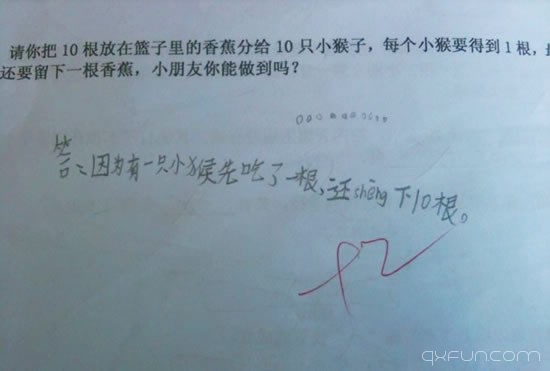 请你把10根放在篮子里的香蕉分给10只小猴子，每个小猴要得到1根，
还要留下一根香蕉，小朋友你能做到吗？
答：因为有一只小猴先吃了一根，还shèng下10根。
qxfun.com